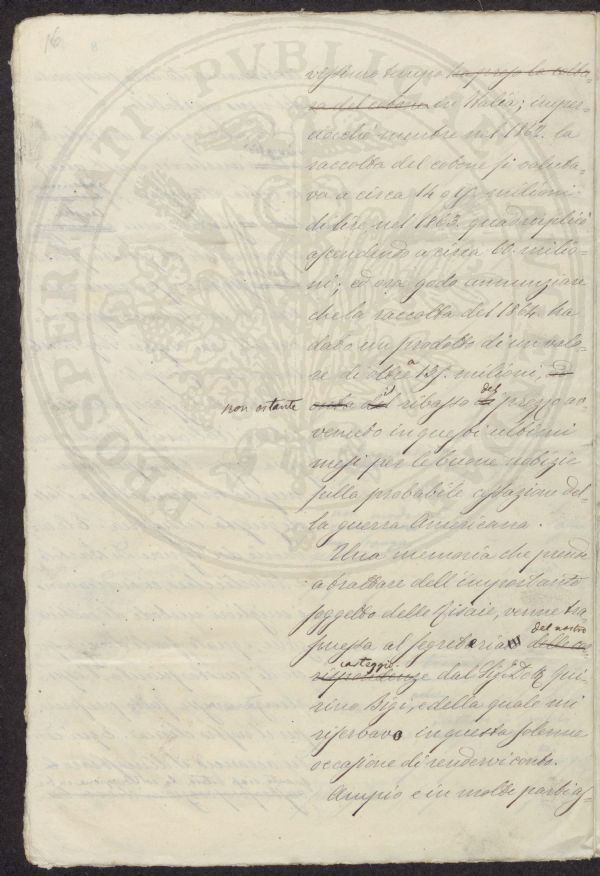 16.
PROSPERITATI PVBLICAE
vissimo tempo ha preso la coltu-
ra del cotone in Italia; imper-
ciocché mentre nel 1862. la
raccolta del cotone si valuta-
va a circa 14 o 15. milioni
di lire, nel 1863. quadruplicò
ascendendo a circa 60. milio-
ni; ed ora godo annunziare
che la raccolta del 1864. ha
dato un prodotto di un valo-
re di oltre a 125. milioni, ad
non ostante
onta del il ribasso di del prezzo av-
venuto in questi ultimi
mesi per le buone notizie
sulla probabile cessazione del-
la guerra Americana.
Una memoria che prende
a trattare dell'importante
soggetto delle Risaie, venne tra
smessa al segretario del nostro della co
rispondenze carteggio dal Sig. Dott. Qui-
rino Bigi, e della quale mi
riserbavo in questa solenne
occasione di rendervi conto.
Ampio e in molte parti as-